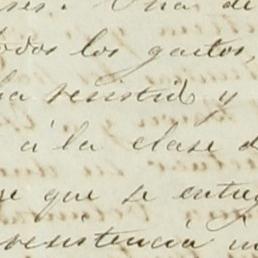 ses. Una de
todos los gastos,
ha resistido y
á la clase d
que se entreg
resistencia in